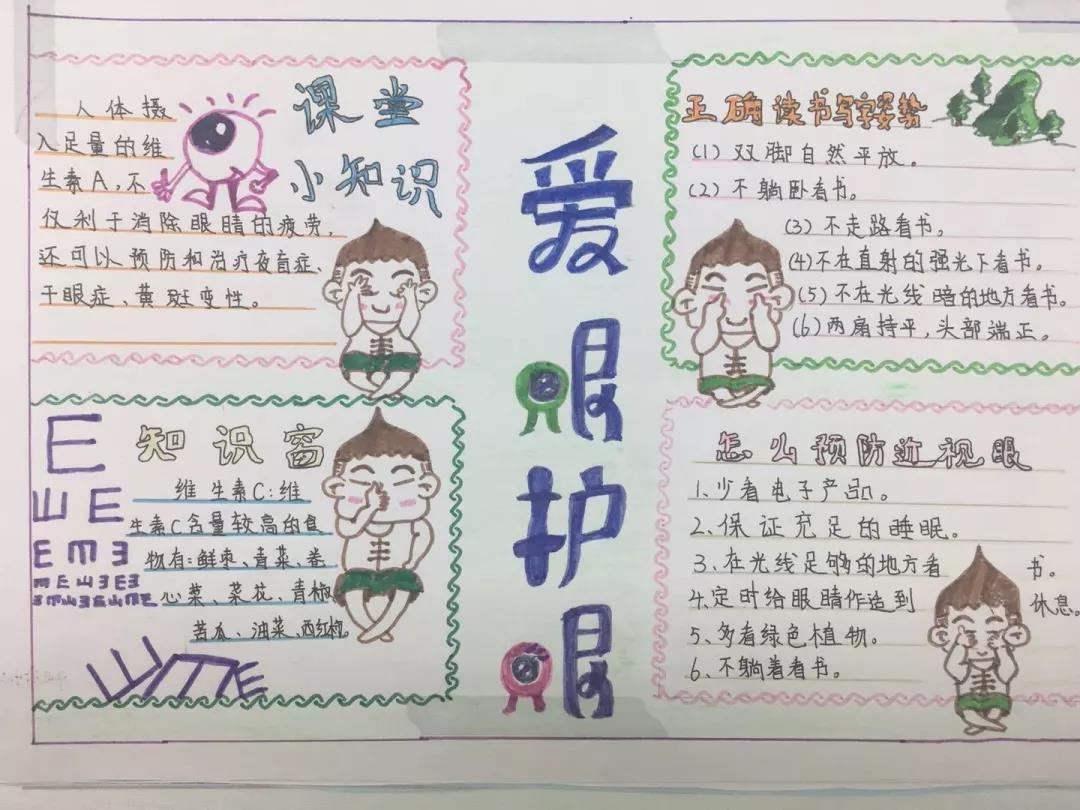 爱眼护眼
课堂
小知识
人体摄
入足量的维
生素A,不
仅利于消除眼睛的疲劳,
还可以预防和治疗夜盲症、
干眼症、黄斑变性。
知识窗
E
ШE
EMƎ
维生素C:维
生素C含量较高的食
物有:鲜枣、青菜、卷
心菜、菜花、青椒
苦瓜、油菜、西红柿。
正确读书写字姿势
(1)双脚自然平放。
(2)不躺卧看书。
(3)不走路看书。
(4)不在直射的强光下看书。
(5)不在光线暗的地方看书。
(6)两肩持平,头部端正。
怎么预防近视眼
1、少看电子产品。
2、保证充足的睡眠。
3、在光线足够的地方看书。
4、定时给眼睛作造到休息。
5、多看绿色植物。
6、不躺着看书。